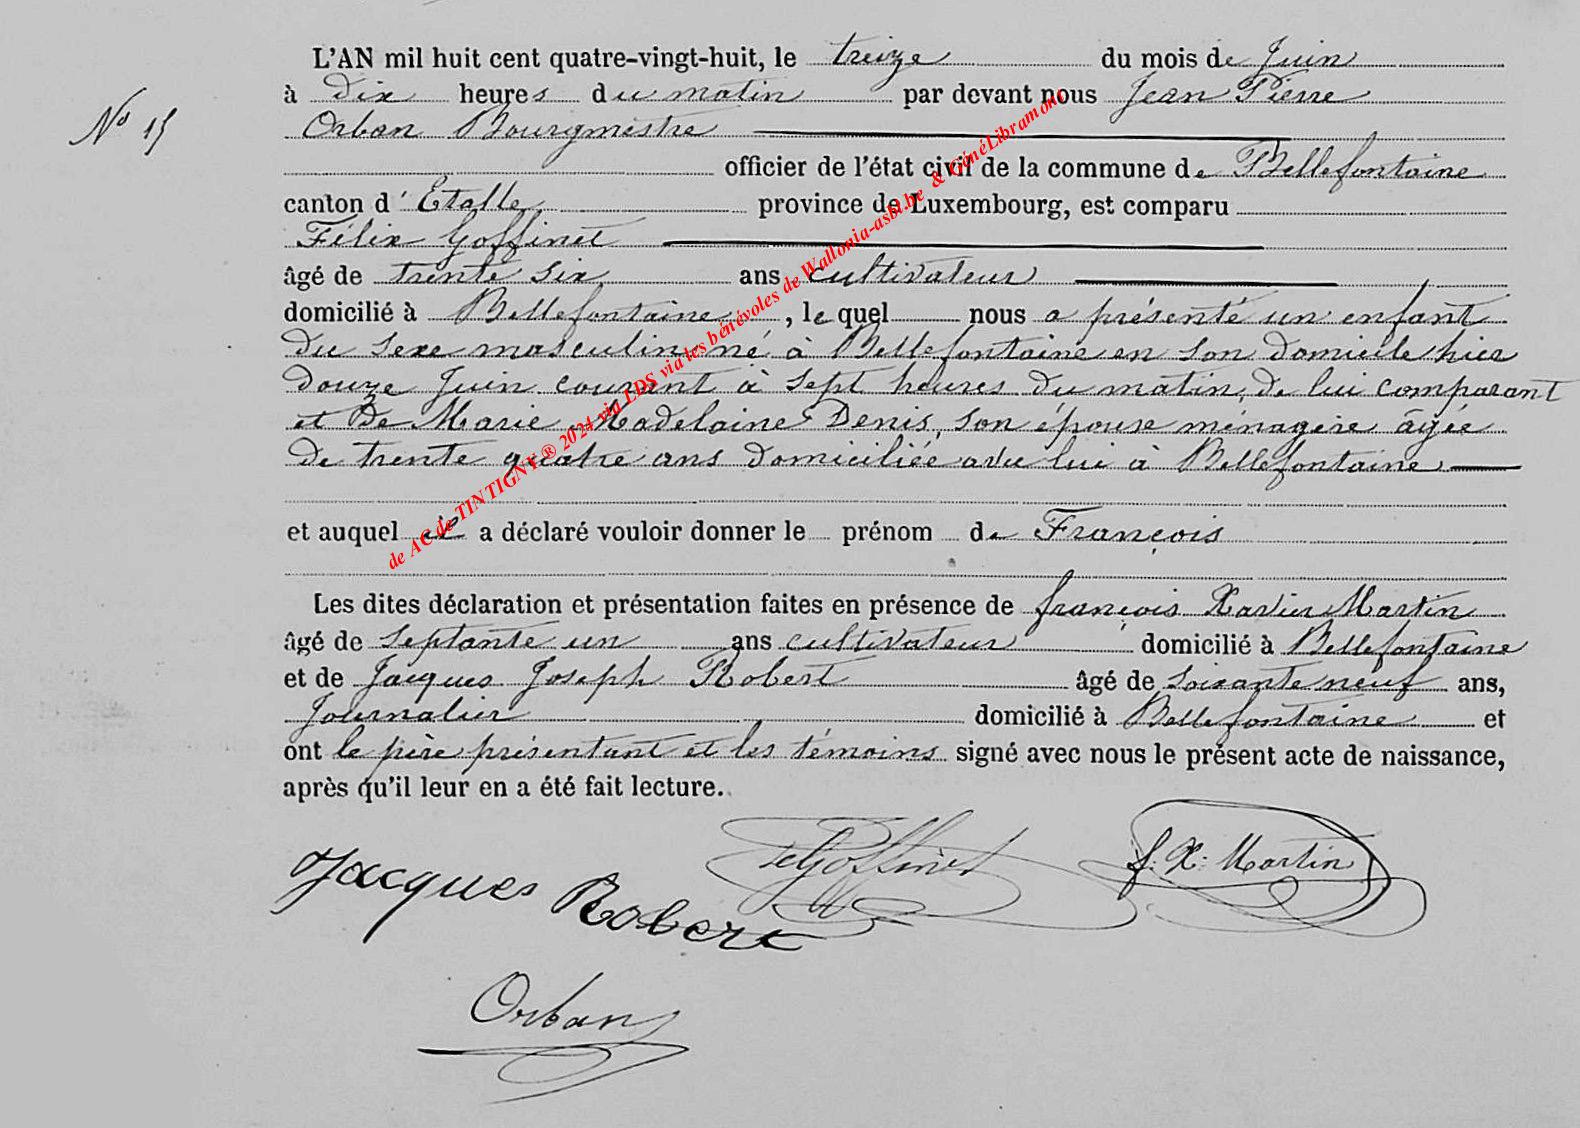 L'AN mil huit cent quatre-vingt-huit, le treize du mois de Juin
No 15
à Dix heures du matin par devant nous Jean Pierre
Orban Bourgmestre
officier de l'état civil de la commune de Bellefontaine
canton d'Etalle province de Luxembourg, est comparu
Félix Goffinet
âgé de trente six ans cultivateur
domicilié à Bellefontaine, le quel nous a présenté un enfant
du sexe masculin, né à Bellefontaine en son domicile hier
douze Juin courant à sept heures du matin, de lui comparant
et de Marie Madelaine Denis, son épouse ménagère âgée
de trente quatre ans domiciliée avec lui à Bellefontaine,
et auquel il a déclaré vouloir donner le prénom de François
Les dites déclaration et présentation faites en présence de françois Xavier Martin
âgé de septante un ans cultivateur domicilié à Bellefontaine
et de Jacques Joseph Robert âgé de soixante neuf ans,
Journalier domicilié à Bellefontaine et
ont le père présentant et les témoins signé avec nous le présent acte de naissance,
après qu'il leur en a été fait lecture.
Goffinet f. X. Martin
Jacques Robert
Orban
de AC de TINTIGNY ® 2024 via LDS via les bénévoles de Wallonia-asbl.be & GénéLibramont